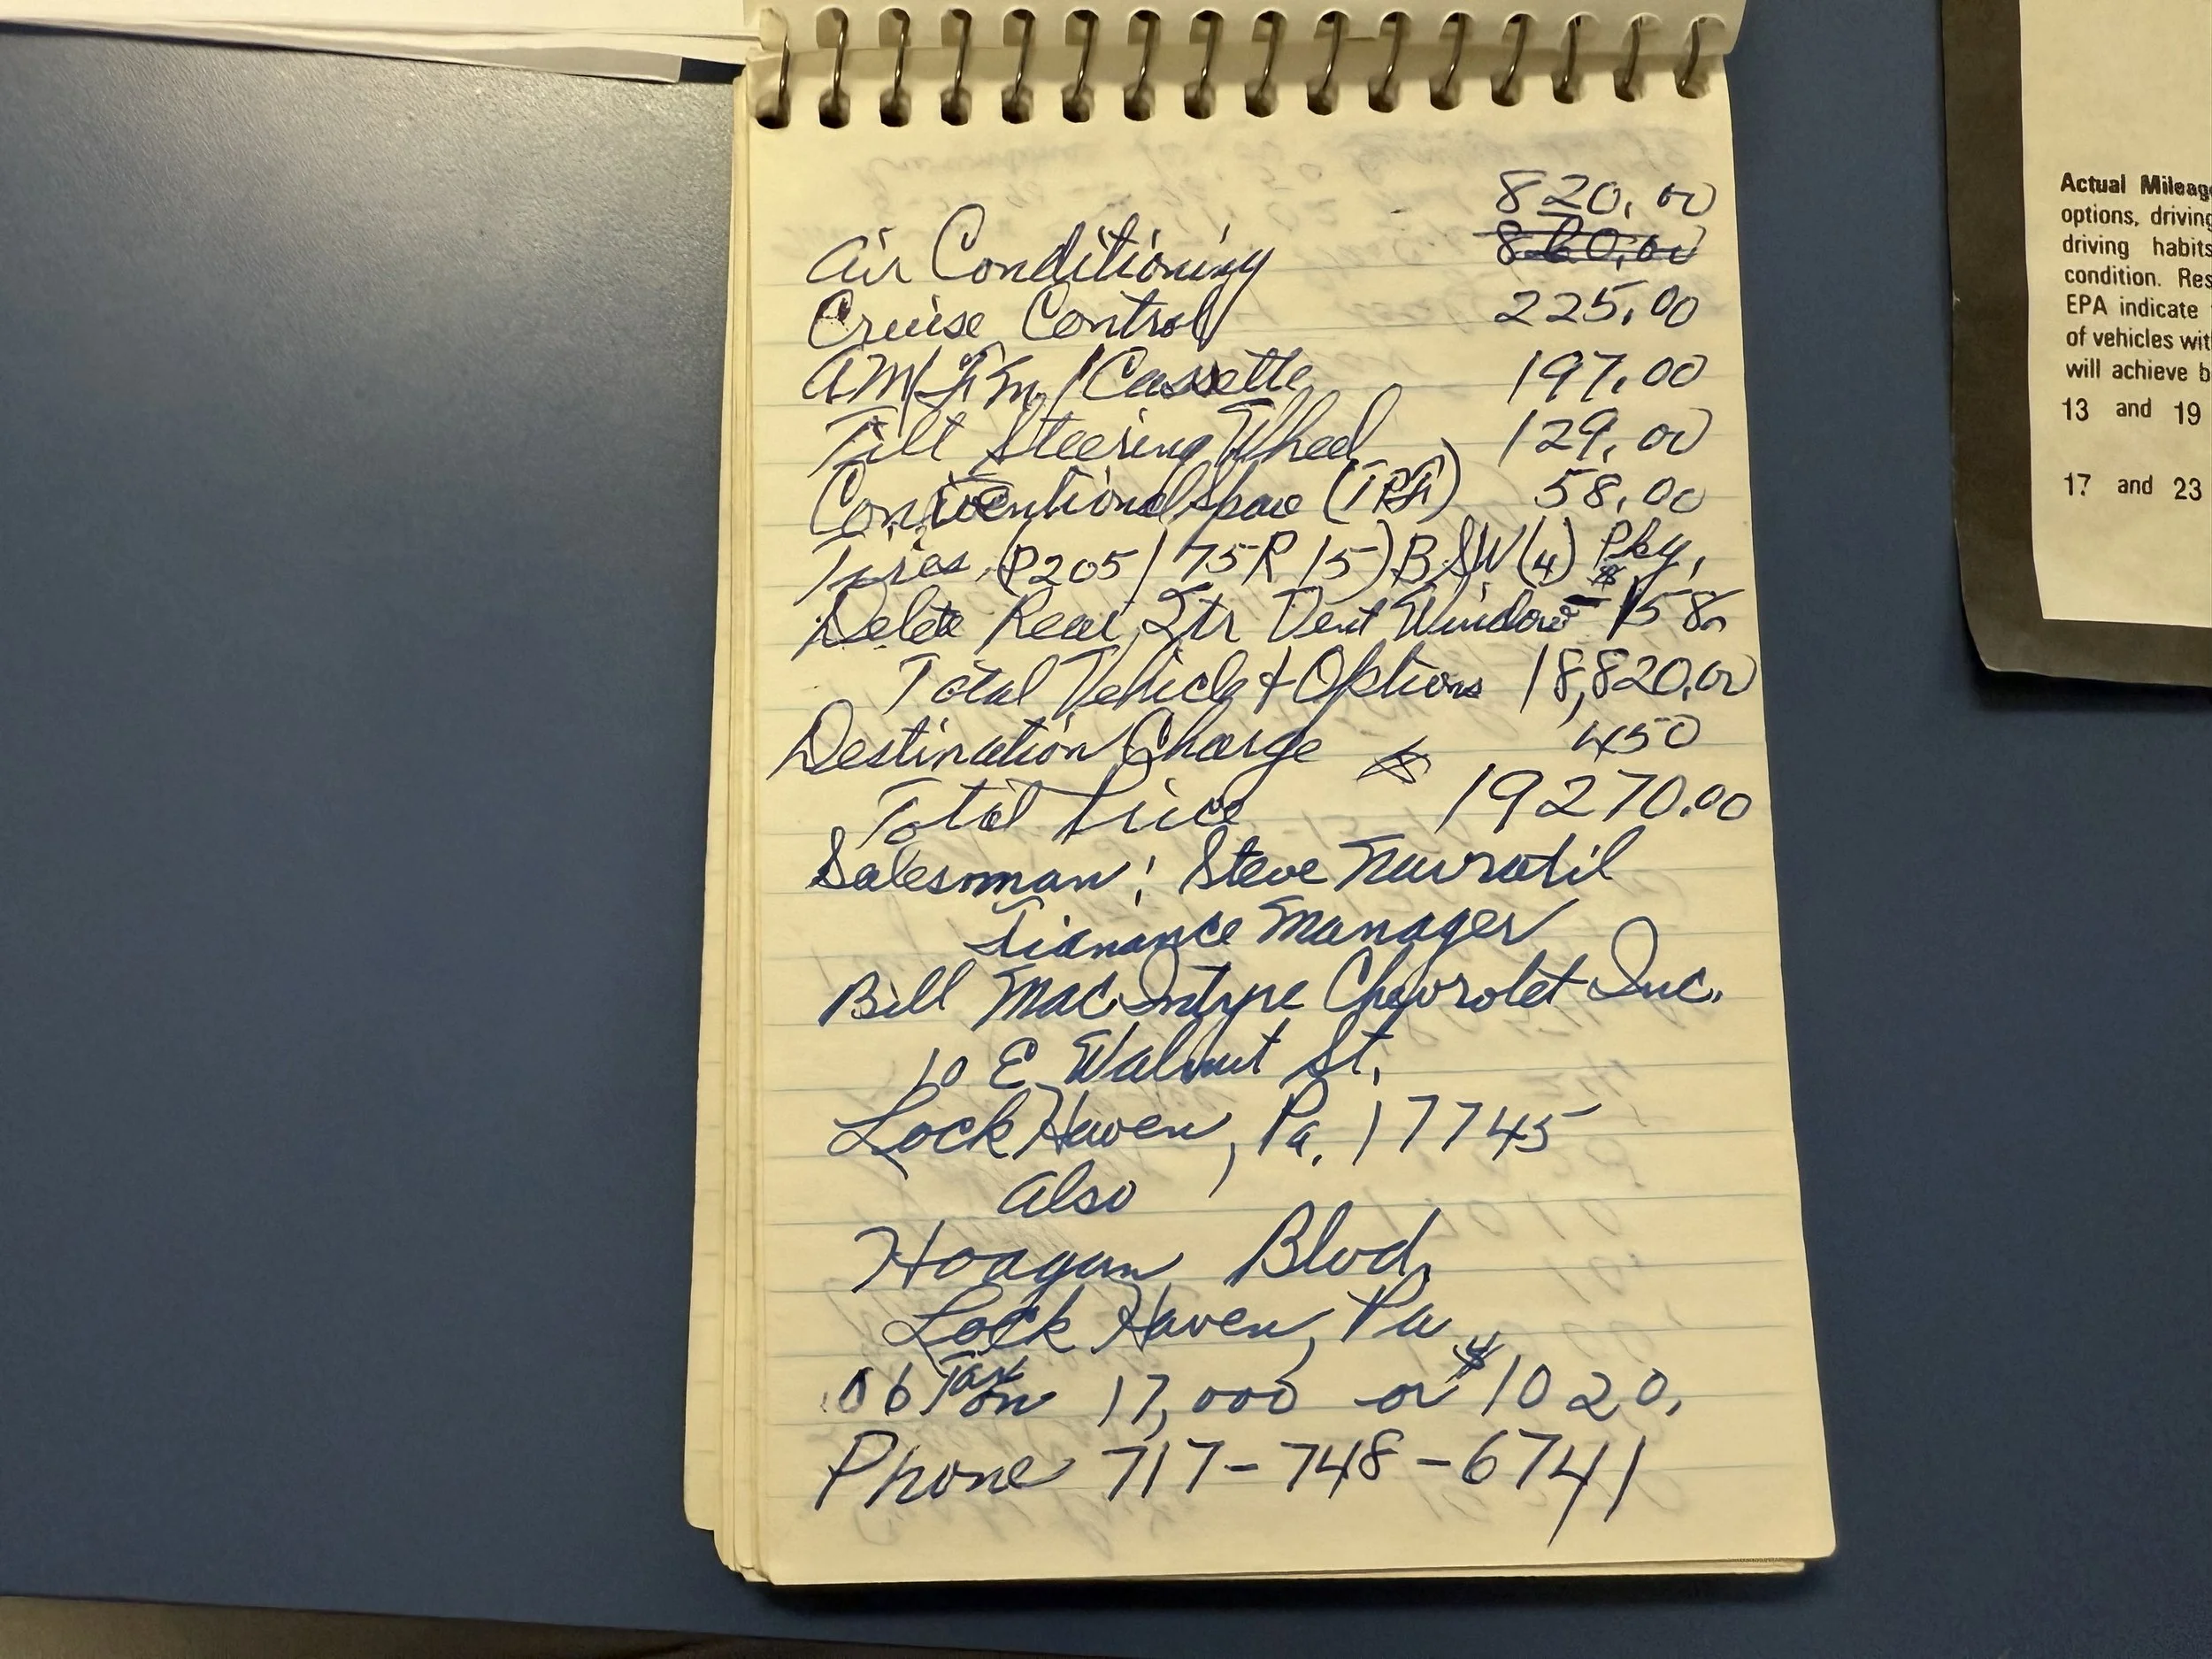 820.00
Air Conditioning 860.00
Cruise Control 225.00
AM/Fm/Cassette 197.00
Tilt Steering Wheel 129.00
Conventional Spare 58.00
Tires (P205/75R15) BSW (4) Pkg.
Delete Rear Qtr Vent Window - $158.
Total Vehicle & Options 18,820.00
Destination Charge 450
Total Price $ 19270.00
Salesman: Steve Navratil
Fianance Manager
Bill MacIntyre Chevrolet Inc.
10 E Walnut St.
Lock Haven, Pa. 17745
Also
Hoagan Blvd.
Lock Haven, Pa
.06 Tax on 17,000 or $1020.
Phone 717-748-6741
Actual Mileag
options, driving
driving habits
condition. Res
EPA indicate
of vehicles wit
will achieve b
13 and 19
17 and 23